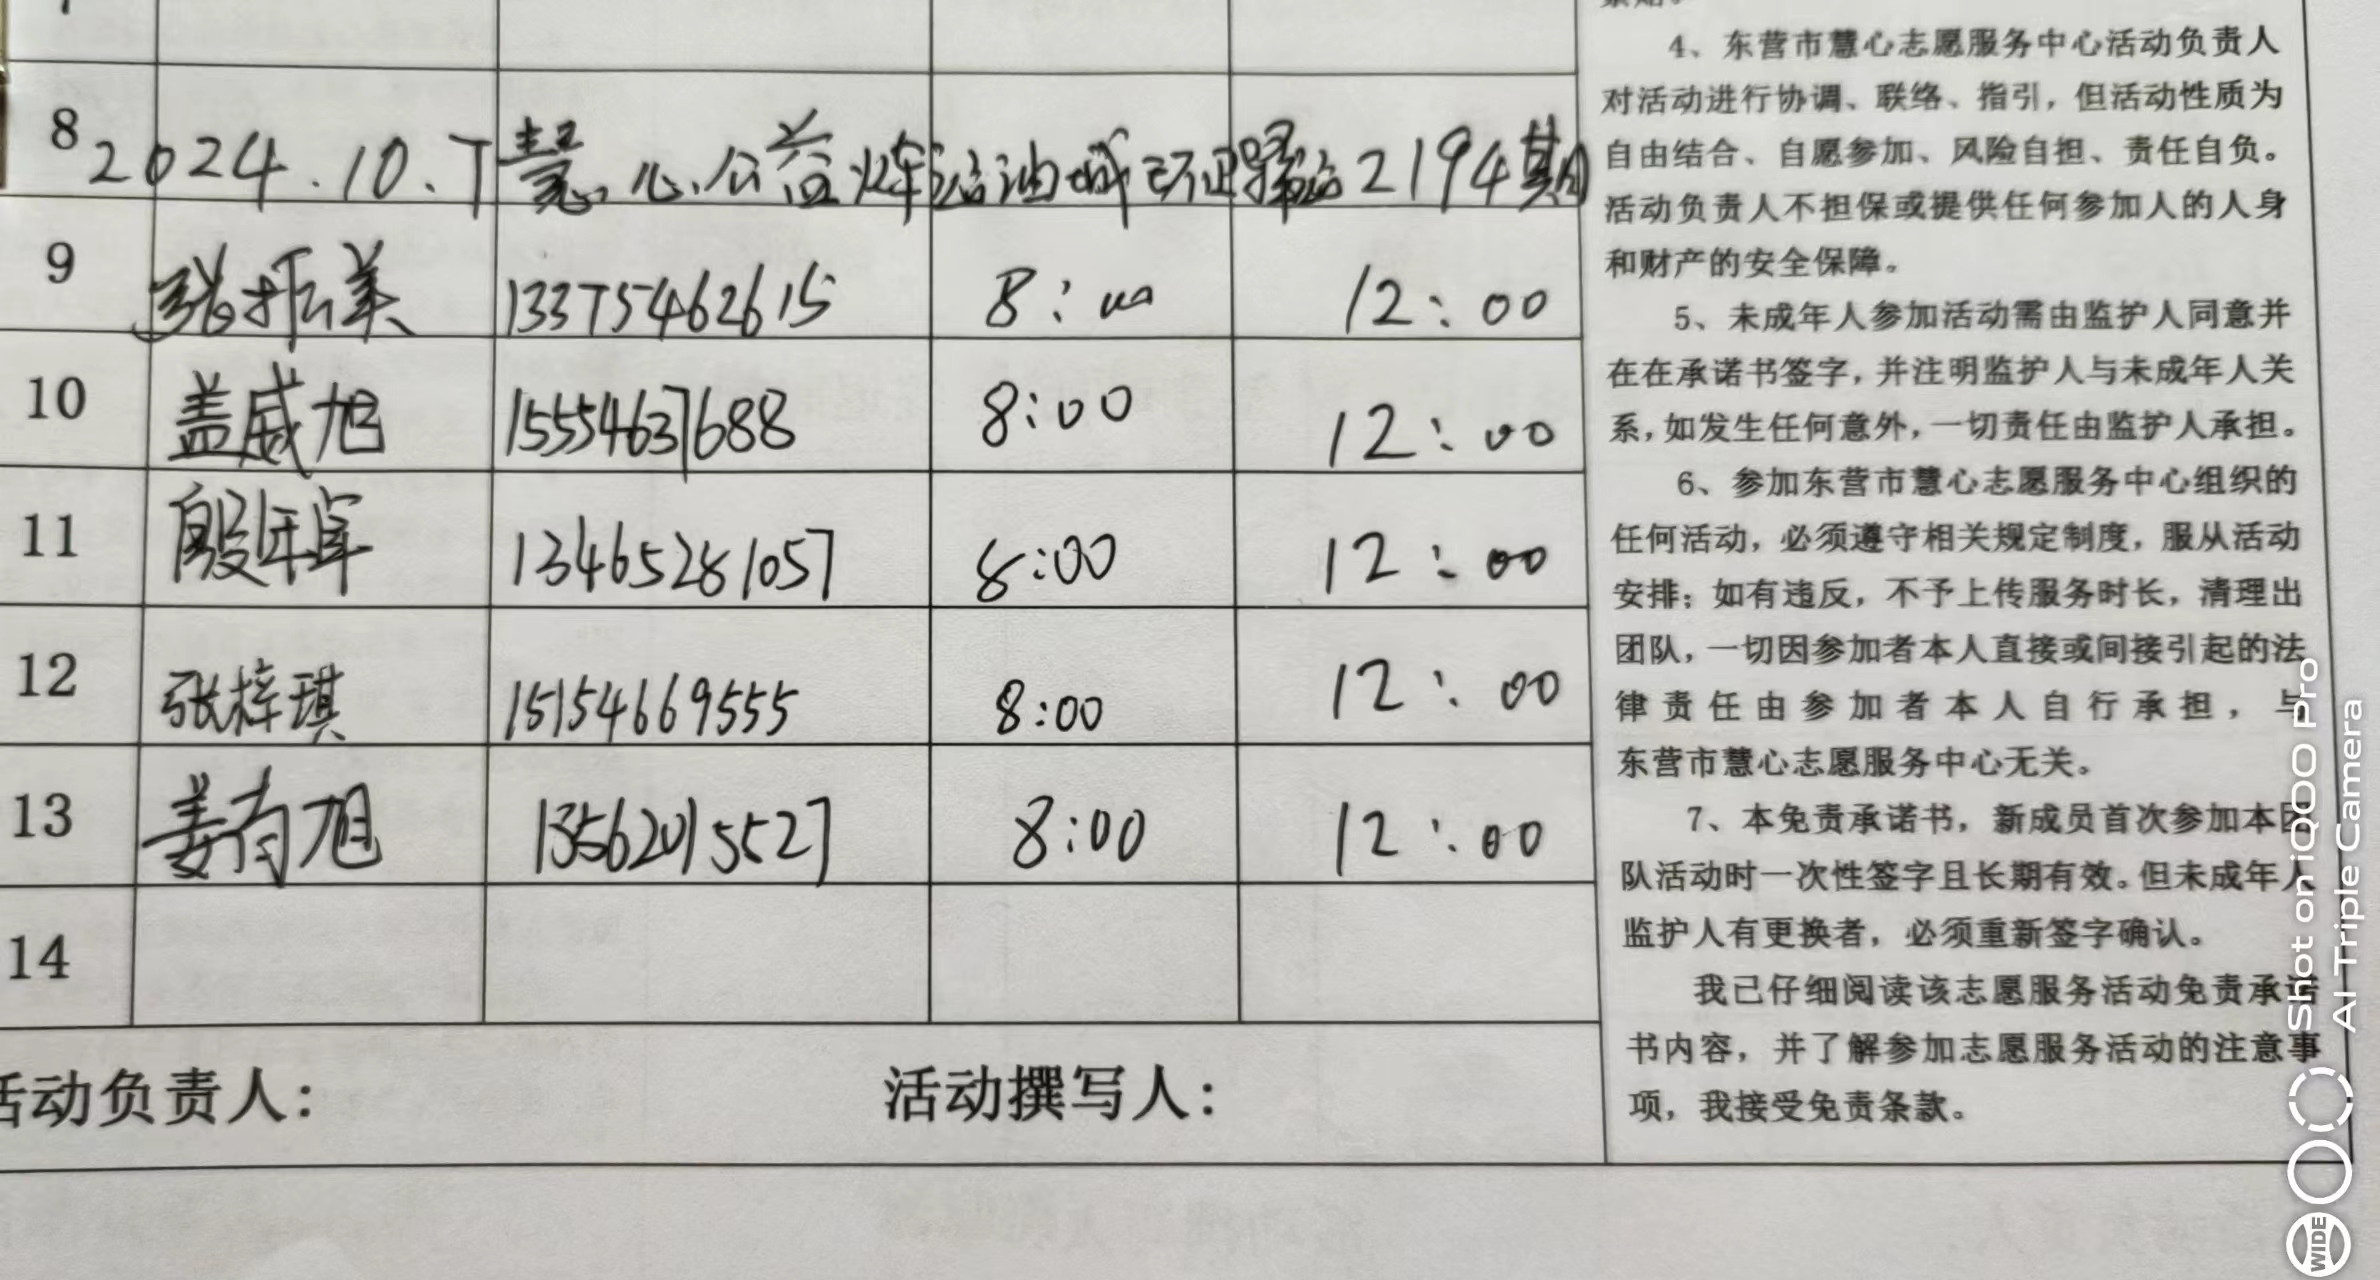 8 2024.10.7慧心公益炫动油城环卫驿站2194期
9 张振美 13375462615 8:00 12:00
10 盖威旭 15554637688 8:00 12:00
11 殷 13465281057 8:00 12:00
12 张梓琪 15154669555 8:00 12:00
13 姜有旭 13562015527 8:00 12:00
14
活动负责人: 活动撰写人:
4、东营市慧心志愿服务中心活动负责人
对活动进行协调、联络、指引，但活动性质为
自由结合、自愿参加、风险自担、责任自负。
活动负责人不担保或提供任何参加人的人身
和财产的安全保障。
5、未成年人参加活动需由监护人同意并
在在承诺书签字，并注明监护人与未成年人关
系，如发生任何意外，一切责任由监护人承担。
6、参加东营市慧心志愿服务中心组织的
任何活动，必须遵守相关规定制度，服从活动
安排；如有违反，不予上传服务时长，清理出
团队，一切因参加者本人直接或间接引起的法
律责任由参加者本人自行承担，与
东营市慧心志愿服务中心无关。
7、本免责承诺书，新成员首次参加本团
队活动时一次性签字且长期有效。但未成年人
监护人有更换者，必须重新签字确认。
我已仔细阅读该志愿服务活动免责承诺
书内容，并了解参加志愿服务活动的注意事
项，我接受免责条款。
Shot on iQOO Pro
AI Triple Camera
WIDE